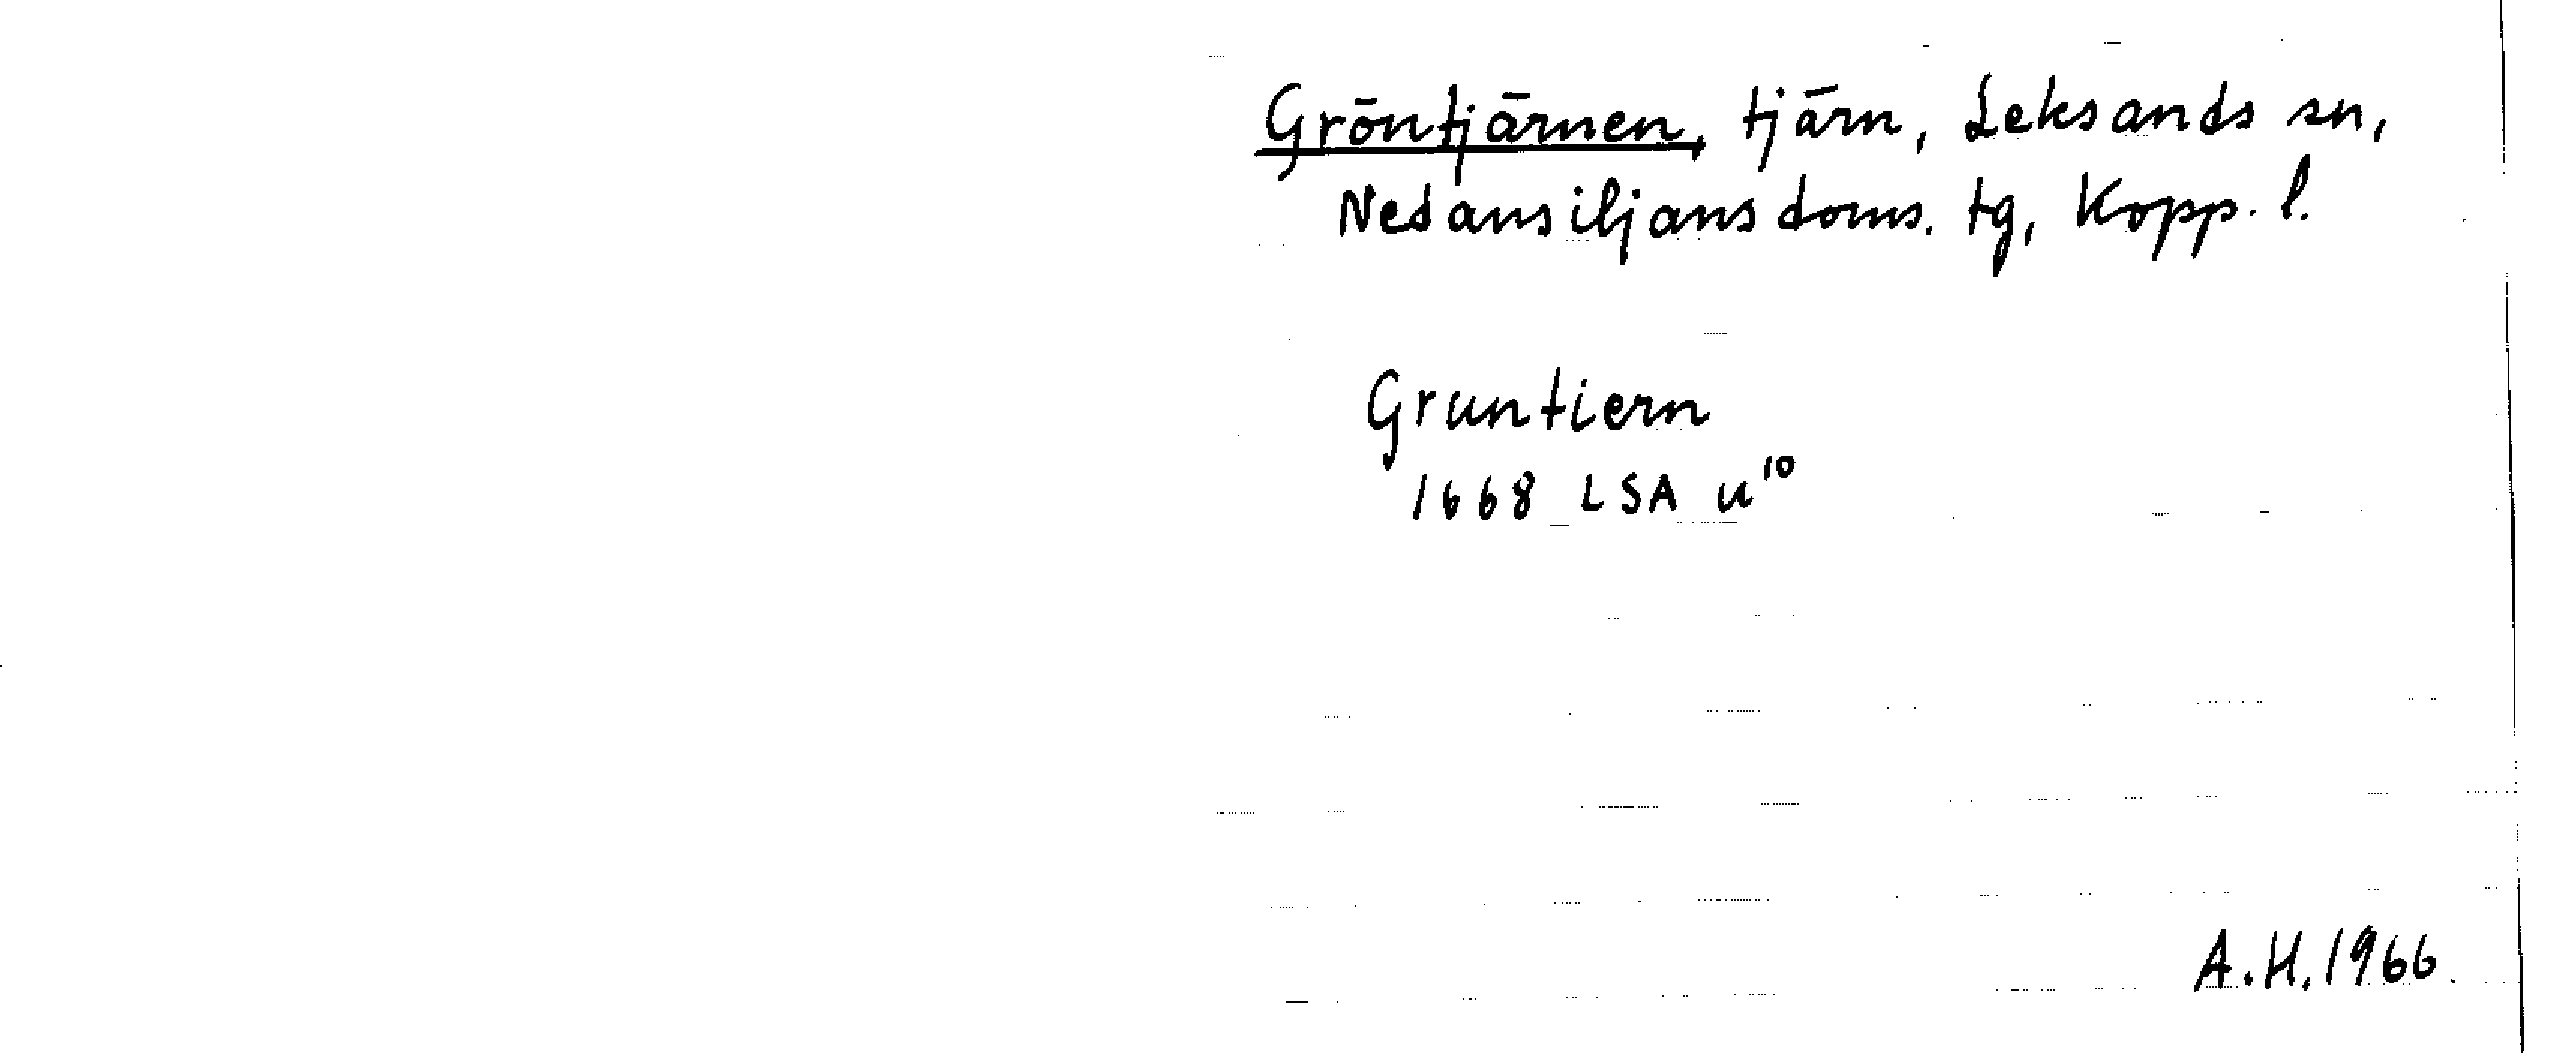 Gröntjärnen, tjärn, Leksands sn,
Nedansiljans doms. tg, Kopp. l.
Gruntiern
1668 LSA U¹⁰
A.H. 1966.